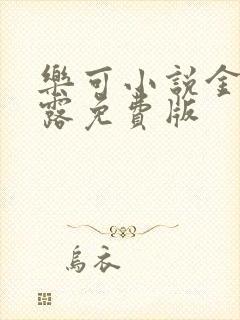 樂可小說金
露免費版
烏衣